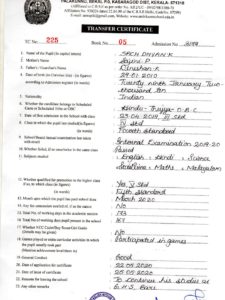 PALAKUNNU, BEKAL P.O, KASARAGOD DIST, KERALA- 671318
TRANSFER CERTIFICATE
TC No: 225
Book No. 05
Admission No.
1 Name of the Pupil (in capital letters) SREE DHYAN K
2 Mother's Name
3 Father's / Guardian's Name
4 Date of birth (in Christian Era) - (in figures) 29.01.2010
according to Admission register (in words) Twenty Ninth January Two thousand Ten
5 Nationality Indian
6 Whether the candidate belongs to Scheduled Caste or Scheduled Tribe or OBC Hindu - Thiyya - O.B.C
7 Date of first admission in the School with class
8 Class in which the pupil last studied (in figures) IV Std
(in words) Fourth Standard
9 School/Board Annual examination last taken with result Internal Examination 2019-20 Passed
10 Whether failed, if so once/twice in the same class No
11 Subjects studied English : Hindi : Science
Maths : Malayalam
12 Whether qualified for promotion to the higher class
if so, to which class (in figures) Yes V Std
(in words) Fifth Standard
13 Month upto which the pupil has paid school dues March 2020
No
15 Total No. of working days in the academic session 193
16 Total No. of working days pupil present in the school 187
17 Whether NCC Cadet/Boy Scout/Girl Guide
(Details may be given) No
18 Games played or extra curricular activities in which
the pupil usually took part Participated in games
19 General Conduct Good
20 Date of application for certificate 22.05.2020
21 Date of issue of certificate 25.05.2020
22 Reasons for leaving the school To continue his studies at